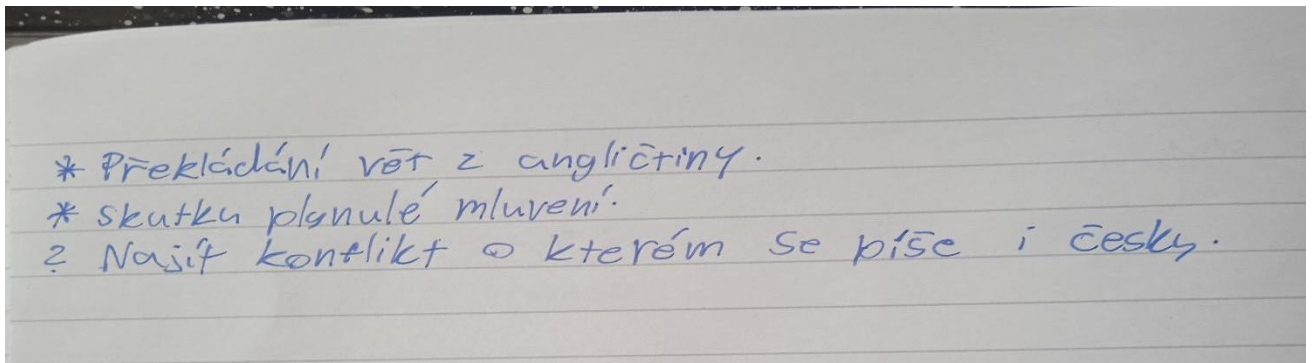 * Překládání vět z angličtiny.
* skutku plynulé mluvení.
? Najít konflikt o kterém se píše i česky.